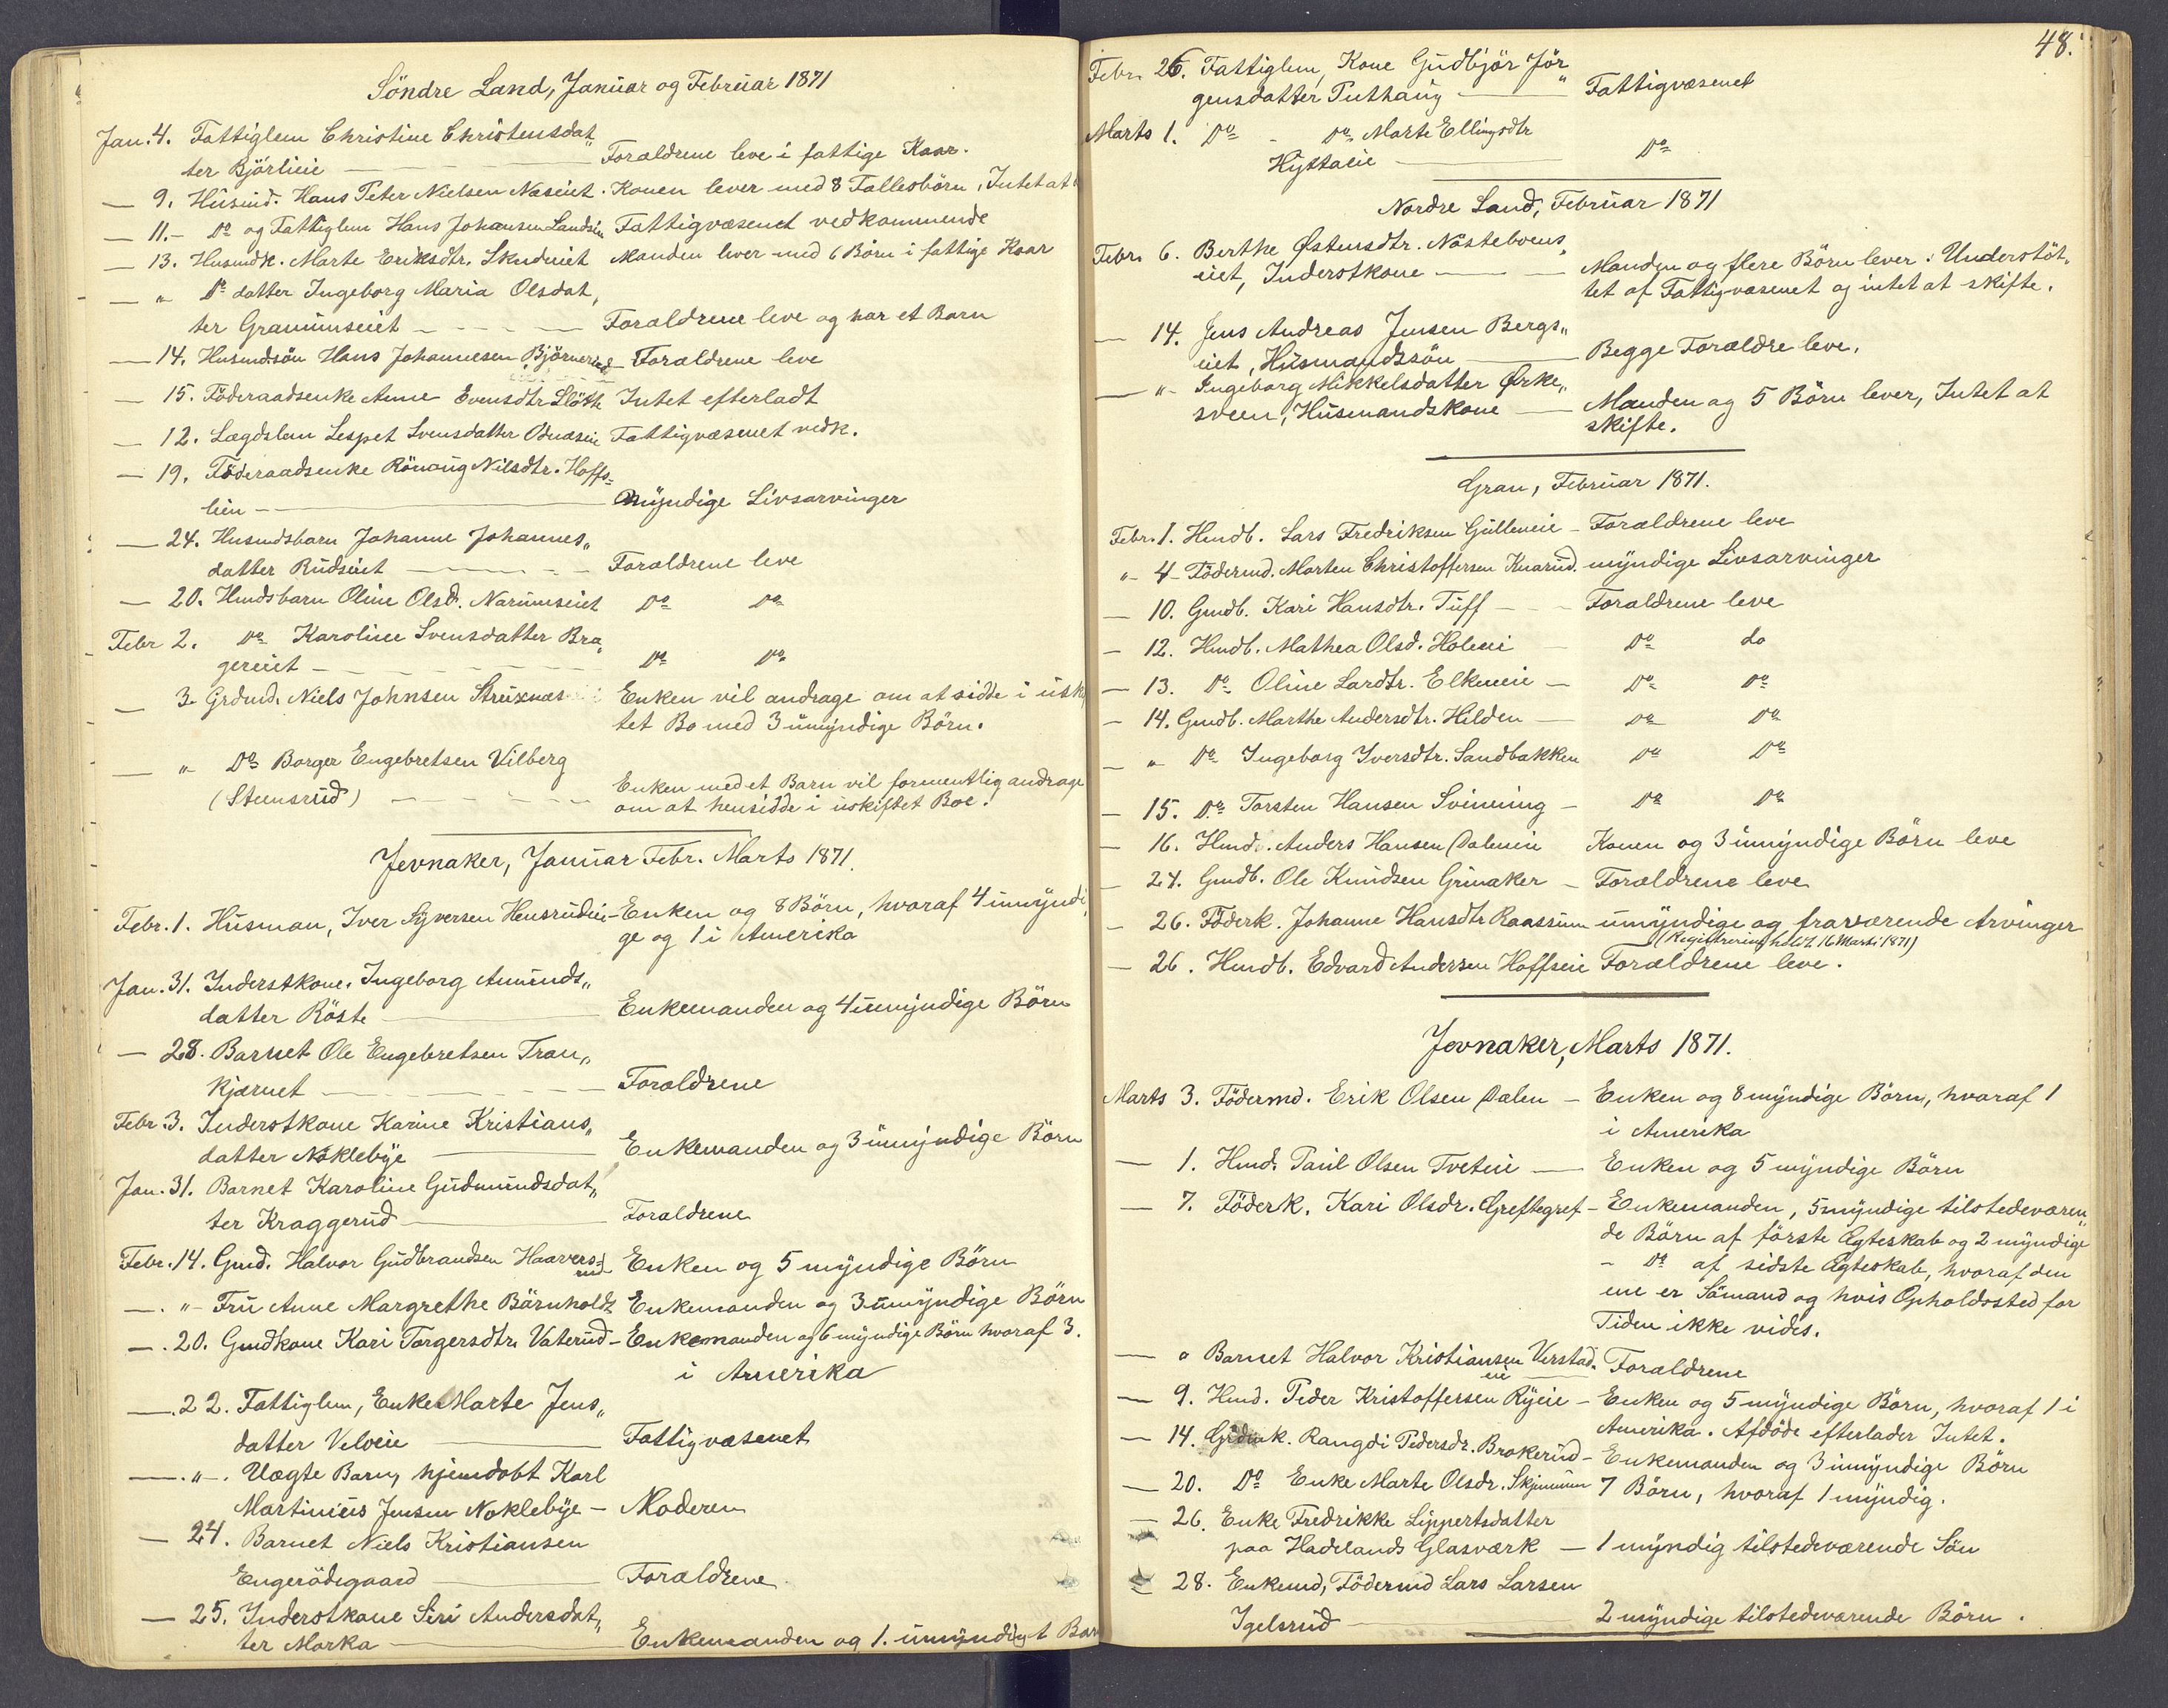 Söndre Land, Januar og Februar 1871
Jan. 4. Fattiglem Christine Christensdat„
ter Björlieie — Forældrene leve i fattige Kaar.
— 9. Husmd. Hans Peter Nielsen Næseiet. Konen lever med 8 Fællesbörn, Intet at
— 11. - Do og Fattiglem Hans Johansen Landsei Fattigvæsenet vedkommende
— 13. Husmdk. Marte Eriksdtr. Skudeiet Manden lever med 6 Börn i fattige Kaar
— „ Do datter Ingeborg Maria Olsdat„
ter Granumseiet — Forældrene leve og har et Barn
— 14. Husmdsön Hans Johannesen Björnerud — Forældrene leve
— 15. Föderaadsenke Anne Evensdtr Slötte Intet efterladt
— 12. Lægdslem Lespet Svensdatter Odnæseie Fattigvæsenet vedk.
— 19. Föderaadsenke Rönnaug Nilsdtr. Hoffs-
lien — Myndige Livsarvinger
— 24. Husmdsbarn Johanne Johannes„
datter Rudseiet — Forældrene leve
— 20. Hmdsbarn Oline Olsd. Narumseiet Do Do
Febr 2. Do Karoline Svensdatter Bra„
gereiet — Do Do
— 3. Grdmd. Niels Johnsen Struxnæs Enken vil andrage om at sidde i usk
tet Bo med 3 umyndige Börn.
— „ Do Borger Engebretsen Vilberg
(Steensrud) — Enken med et Barn vil formentlig andrage
om at hensidde i uskiftet Boe.
Jevnaker, Januar Febr. Marts 1871.
Febr. 1. Husman, Iver Syversen Hensrudeie - Enken og 8 Börn, hvoraf 4 umyndi„
ge og 1 i Amerika
Jan. 31. Inderstkone. Ingeborg Amunds„
datter Röste — Enkemanden og 4 umyndige Börn
— 28. Barnet Ole Engebretsen Tran„
kjærnet — Forældrene
Febr. 3. Inderstkone Karine Kristians„
datter Nöklebye — Enkemanden og 3 umyndige Börn
Jan. 31. Barnet Karoline Gudmundsdat„
ter Kraggerud — Forældrene
Febr. 14. Gmd. Halvor Gudbrandsen Haavers=
rud Enken og 5 myndige Börn
— . „ - Fru Anne Margrethe Bärnholdt Enkemanden og 3 umyndige Börn
— . 20. Gmdkone Kari Torgersdtr. Vaterud - Enkemanden og 6 myndige Börn hvoraf 3.
i Amerika
— . 22. Fattiglem, Enke Marte Jens„
datter Velveie — Fattigvæsenet
— . „ . Uægte Barn, hjemdöbt Karl
Martinius Jensen Noklebye - Moderen
— 24. Barnet Niels Kristiansen
Engerödegaard — Forældrene.
— 25. Inderstkone Siri Andersdat„
ter Morka — Enkemanden og 1. umyndigt Barn
48.
Febr. 26. Fattiglem, Kone Gudbjör Jör„
gensdatter Puthaug — Fattigvæsenet
Marts 1. Do - Do Marte Ellingsdtr
Hyttaeie — Do
Nordre Land, Februar 1871
Febr. 6. Berthe Østensdtr. Nösteboens„
eiet, Inderstkone — Manden og flere Börn lever. Understöt„
tet af Fattigvæsenet og intet at skifte.
— 14. Jens Andreas Jensen Bergs„
eiet, Husmandssön — Begge Forældre leve.
— „ - Ingeborg Mikkelsdatter Ørke„
sveen, Husmandskone — Manden og 5 Börn lever, Intet at
skifte.
Gran, Februar 1871.
Febr. 1. Hmdb. Lars Fredriksen Gulleneie - Forældrene leve
„ - 4 - Födermd. Morten Christoffersen Knarud. myndige Livsarvinger
— 10. Gmdb. Kari Hansdtr. Tuff — Forældrene leve
— 12. Hmdb. Mathea Olsd. Holeeie Do do
— 13. Do Oline Larsdtr. Elkeneie — Do Do
— 14. Gmdb. Marthe Andersdtr. Hilden — Do Do
— „ Do Ingeborg Iversdtr. Sandbakken Do Do
— 15. Do Torsten Hansen Svinning — Do Do
— 16. Hmd. Anders Hansen Daleneie Konen og 3 umyndige Börn leve
— 24. Gmdb. Ole Knudsen Grinaker — Forældrene leve
— 26. Föderk. Johanne Hansdtr Raassum umyndige og fraværende Arvinger
(Registrering holdt 16 Marts 1871)
— 26. Hmdb. Edvard Andersen Hoffseie Forældrene leve.
Jevnaker, Marts 1871.
Marts 3. Födermd. Erik Olsen Dalen — Enken og 8 myndige Börn, hvoraf 1
i Amerika
— 1. Hmd. Paul Olsen Tveteie — Enken og 5 myndige Börn
— 7. Föderk. Kari Olsdr. Greftegref - Enkemanden, 5 myndige tilstedeværen„
de Börn af förste Ægteskab og 2 myndige
- Do af sidste Ægteskab, hvoraf den
ene er Sömand og hvis Opholdssted for
Tiden ikke vides.
— „ Barnet Halvor Kristiansen Verstad.
eie — Forældrene
— 9. Hmd. Peder Kristoffersen Ryeie - Enken og 5 myndige Börn, hvoraf 1 i
Amerika. Afdöde efterlader Intet.
— 14. Grdmk. Rangdi Pedersdr. Brokerud - Enkemanden og 3 umyndige Börn
— 20. Do Enke Marte Olsdr. Skjennum 7 Börn, hvoraf 1 myndig.
— 26. Enke Fredrikke Lippertsdatter
paa Hadelands Glasværk — 1 myndig tilstedeværende Sön
— 28. Enkemd, Födermd Lars Larsen
Igelsrud — 2 myndige tilstedeværende Börn.